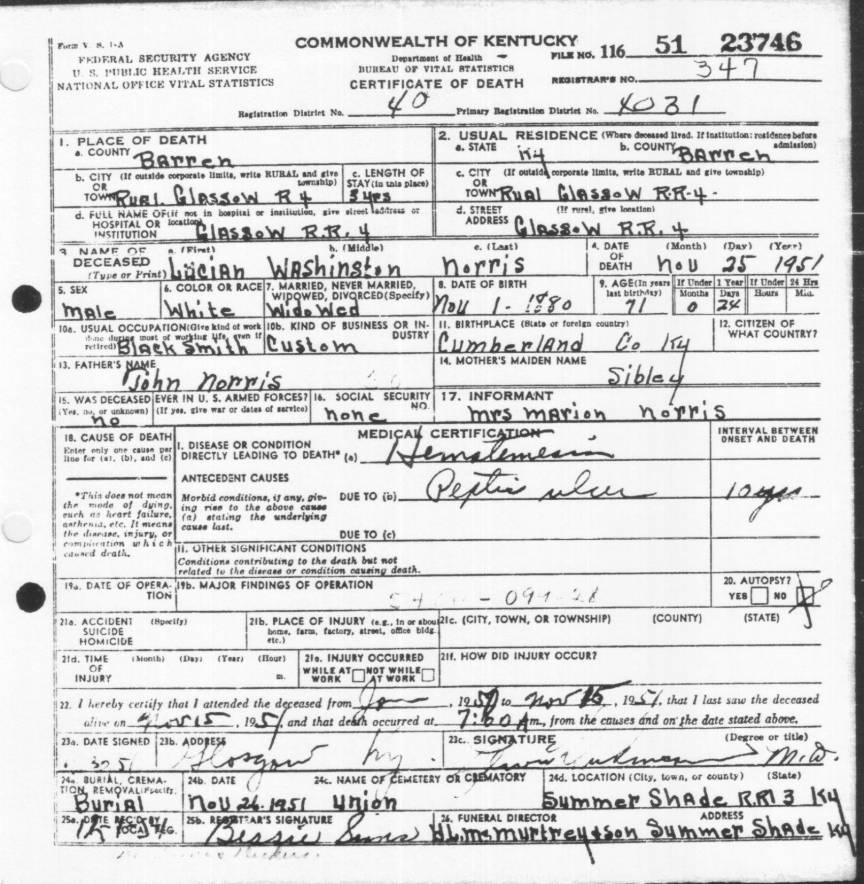 Form V. S. 1-A
FEDERAL SECURITY AGENCY
U. S. PUBLIC HEALTH SERVICE
NATIONAL OFFICE VITAL STATISTICS
COMMONWEALTH OF KENTUCKY
Department of Health
BUREAU OF VITAL STATISTICS
CERTIFICATE OF DEATH
FILE NO. 116 51 23746
REGISTRAR'S NO. 347
Registration District No. 40 Primary Registration District No. 4031
1. PLACE OF DEATH
a. COUNTY Barren
2. USUAL RESIDENCE (Where deceased lived. If institution: residence before admission)
a. STATE Ky b. COUNTY Barren
b. CITY (If outside corporate limits, write RURAL and give township) OR TOWN Rural Glassow R 4
c. LENGTH OF STAY (in this place) 3 yrs
c. CITY (If outside corporate limits, write RURAL and give township) OR TOWN Rual Glassow R.R-4-
d. FULL NAME OF (If not in hospital or institution, give street address or location) HOSPITAL OR INSTITUTION Glassow R.R. 4
d. STREET ADDRESS (If rural, give location) Glassow R.R. 4
3. NAME OF DECEASED (Type or Print)
a. (First) Lucian b. (Middle) Washinston c. (Last) Norris
4. DATE OF DEATH (Month) (Day) (Year) Nov 25 1951
5. SEX Male
6. COLOR OR RACE White
7. MARRIED, NEVER MARRIED, WIDOWED, DIVORCED (Specify) Widowed
8. DATE OF BIRTH Nov 1- 1880
9. AGE (In years last birthday) 71 If Under 1 Year Months 0 Days 24 If Under 24 Hrs Hours Min.
10a. USUAL OCCUPATION (Give kind of work done during most of working life, even if retired) Black Smith
10b. KIND OF BUSINESS OR INDUSTRY Custom
11. BIRTHPLACE (State or foreign country) Cumberland Co Ky
12. CITIZEN OF WHAT COUNTRY?
13. FATHER'S NAME John Norris
14. MOTHER'S MAIDEN NAME Sibley
15. WAS DECEASED EVER IN U. S. ARMED FORCES? (Yes, no, or unknown) (If yes, give war or dates of service) no
16. SOCIAL SECURITY NO. none
17. INFORMANT Mrs Marion Norris
18. CAUSE OF DEATH
Enter only one cause per line for (a), (b), and (c)
MEDICAL CERTIFICATION
INTERVAL BETWEEN ONSET AND DEATH
I. DISEASE OR CONDITION DIRECTLY LEADING TO DEATH* (a) Hematemesis
*This does not mean the mode of dying, such as heart failure, asthenia, etc. It means the disease, injury, or complication which caused death.
ANTECEDENT CAUSES
Morbid conditions, if any, giving rise to the above cause (a) stating the underlying cause last.
DUE TO (b) Peptic ulcer 10 yrs
DUE TO (c)
II. OTHER SIGNIFICANT CONDITIONS
Conditions contributing to the death but not related to the disease or condition causing death.
19a. DATE OF OPERATION
19b. MAJOR FINDINGS OF OPERATION
20. AUTOPSY?
YES NO
21a. ACCIDENT SUICIDE HOMICIDE (Specify)
21b. PLACE OF INJURY (e.g., in or about home, farm, factory, street, office bldg. etc.)
21c. (CITY, TOWN, OR TOWNSHIP) (COUNTY) (STATE)
21d. TIME OF INJURY (Month) (Day) (Year) (Hour) m.
21e. INJURY OCCURRED WHILE AT WORK NOT WHILE AT WORK
21f. HOW DID INJURY OCCUR?
22. I hereby certify that I attended the deceased from Jan, 1950 to Nov 15, 1951, that I last saw the deceased
alive on Nov 15, 1951 and that death occurred at 7:00 A m., from the causes and on the date stated above.
23a. DATE SIGNED
23b. ADDRESS Glasgow Ky.
23c. SIGNATURE (Degree or title) M.D.
24a. BURIAL, CREMATION, REMOVAL (Specify) Burial
24b. DATE Nov 26 1951
24c. NAME OF CEMETERY OR CREMATORY Union
24d. LOCATION (City, town, or county) (State) Summer Shade R.R 3 Ky
25a. DATE REC'D BY LOCAL REG.
25b. REGISTRAR'S SIGNATURE Bessie Sims
26. FUNERAL DIRECTOR ADDRESS
H.L. McMurtrey & Son Summer Shade Ky